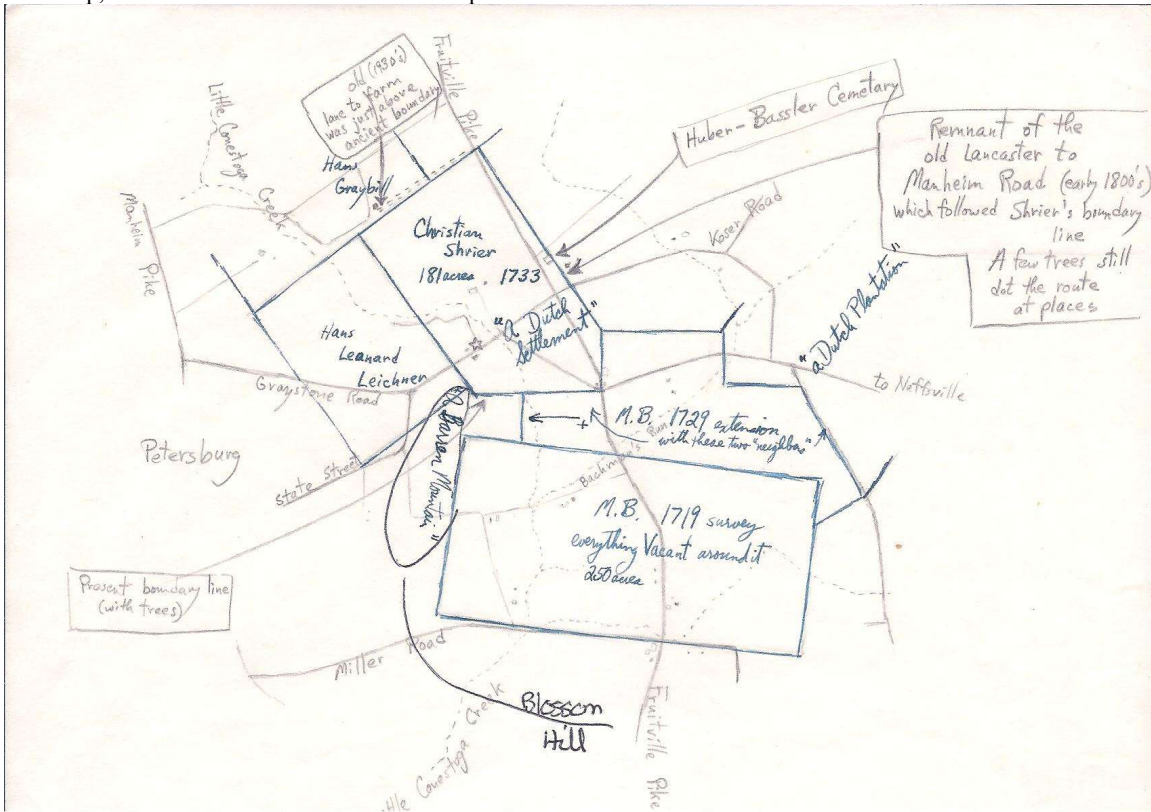 old (1930's)
lane to farm
was just above
ancient boundary
Fruitville Pike
Little Conestoga
Creek
Hans
Graybill
Huber-Bassler Cemetary
Remnant of the
old Lancaster to
Manheim Road (early 1800's)
which followed Shrier's boundary
line
A few trees still
dot the route
at places
Manheim
Pike
Christian
Shrier
181 acres . 1733
Koser Road
"a Dutch
Settlement"
"a Dutch Plantation"
Hans
Leanard
Leichner
Graystone Road
to Neffsville
M.B. 1729 extension
with these two "neighbors"
Petersburg
State Street
"a Barren Mountain"
Bachman's Run
M.B. 1719 survey
everything Vacant around it
250 acres
Present boundary line
(with trees)
Miller Road
Blossom
Hill
Conestoga Creek
Fruitville Pike